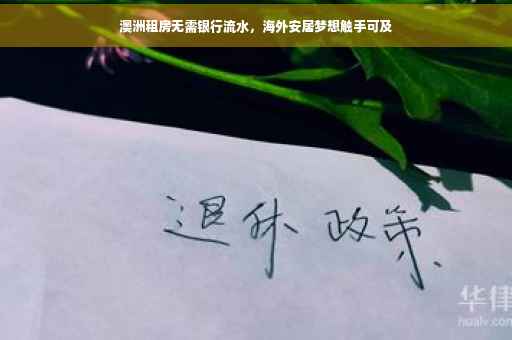 澳洲租房无需银行流水，海外安居梦想触手可及
退休 政策
华律
hualv.com